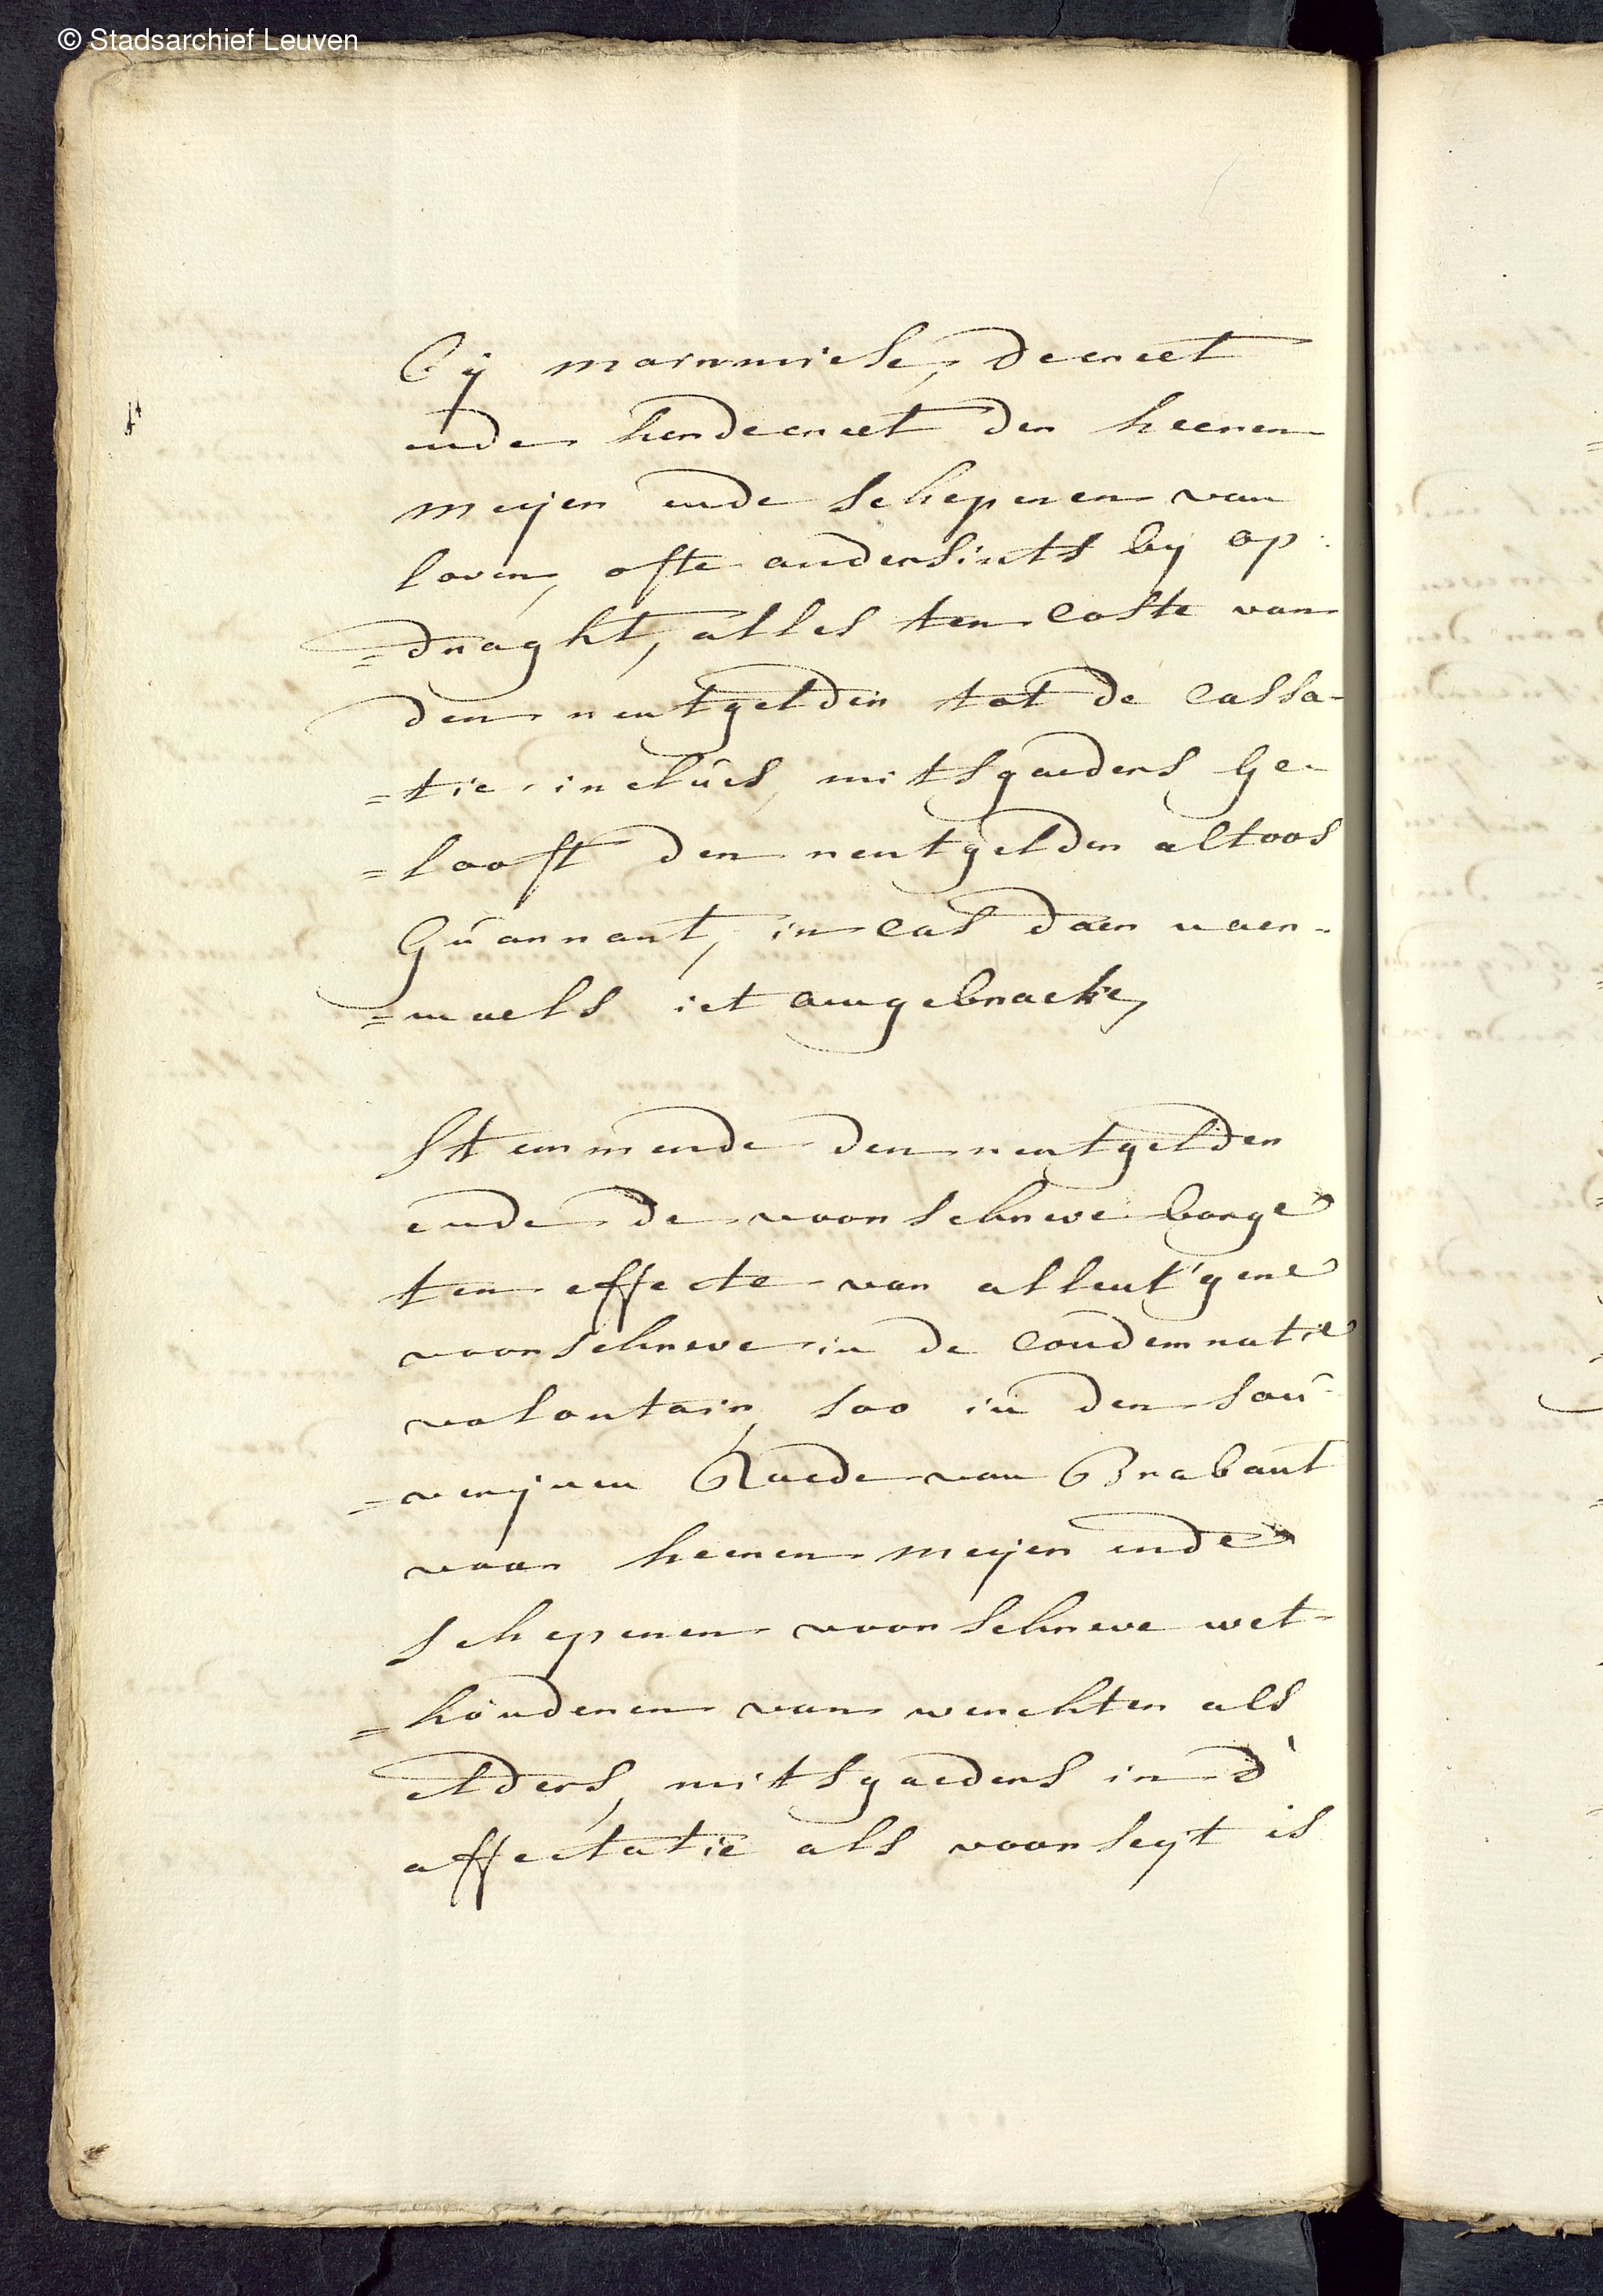 © Stadsarchief Leuven
bij mainmiese, decreet
ende herdecreet der heeren
meijer ende schepenen van
loven, ofte andersints bij op:
=draght, alles ten coste van
den rentgelder tot de cassa-
=tie incluis, mitsgaeders ge-
=looft den rentgelder altoos
guarrant, in cas daer naer-
=maels iet aengebracke,
Stemmende den rentgelder
ende de voorschreve borge
ten effecte van alleut'gene
voorschreve in de condemnatie
volontair, soo in den sou-
=verijnen Raede van Brabant
voor heeren meijer ende
schepenen voorschreve wet-
=hoúderen van werchter als
elders, mitsgaeders in d'
affectatie als voorseyt is